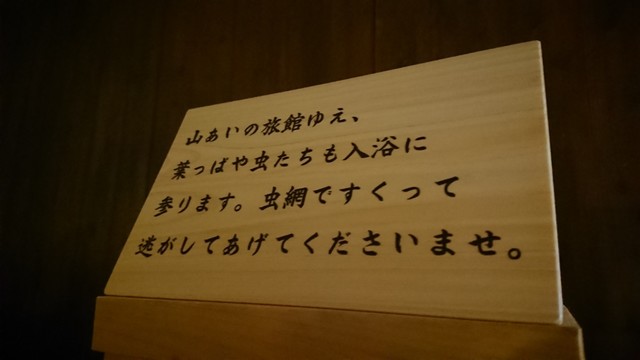 山あいの旅館ゆえ、
葉っぱや虫たちも入浴に
参ります。虫網ですくって
逃がしてあげてくださいませ。